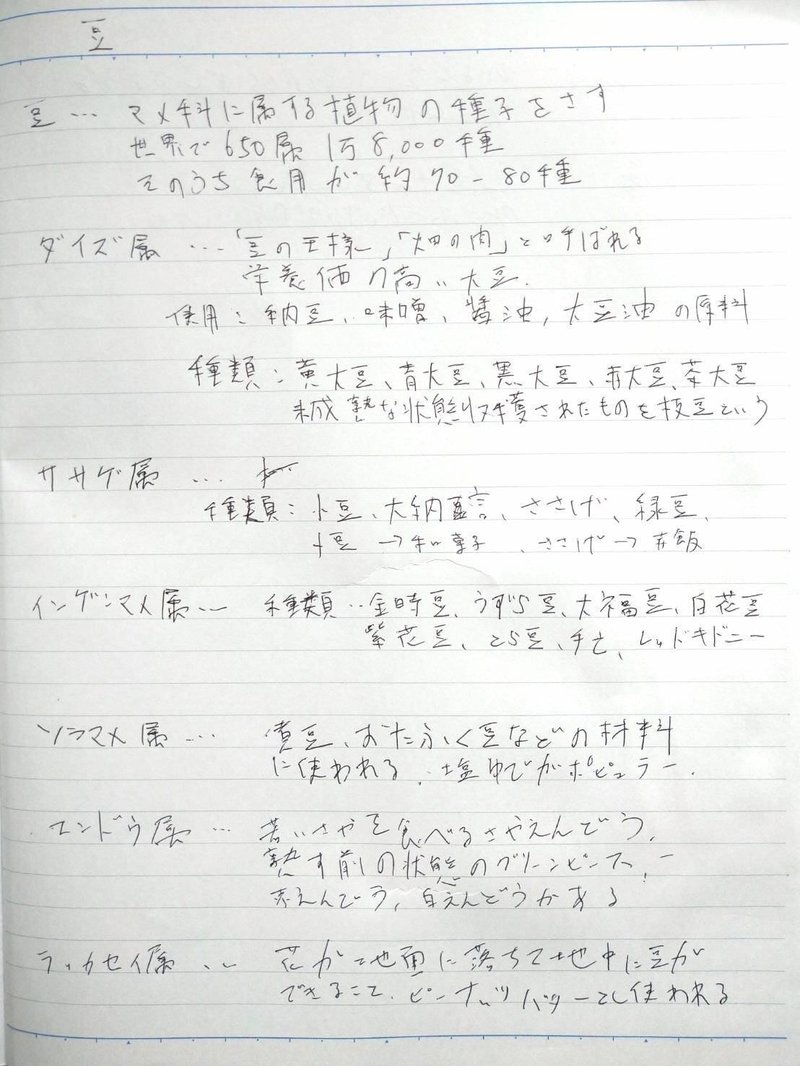 豆
豆… マメ科に属する植物の種子をさす
世界で650属 1万8,000種
そのうち食用が約70-80種
ダイズ属 …「豆の王様」「畑の肉」と呼ばれる
栄養価の高い大豆.
使用: 納豆、味噌、醤油, 大豆油の原料
種類: 黄大豆、青大豆、黒大豆、赤大豆、茶大豆
未成熟な状態収穫されたものを枝豆という
ササゲ属 …
種類: 小豆、大納言、ささげ、緑豆、
小豆→和菓子 、ささげ→赤飯
インゲンマメ属… 種類‥金時豆、うずら豆、大福豆、白花豆
紫花豆、とら豆、手亡、レッドキドニー
ソラマメ属… 煮豆、おたふく豆などの材料
に使われる. 塩ゆでがポピュラー.
エンドウ属… 若いさやを食べるさやえんどう、
熟す前の状態のグリーンピース、
赤えんどう, 白えんどうがある
ラッカセイ属… 花が地面に落ちて地中に豆が
できること. ピーナッツバターとし使われる